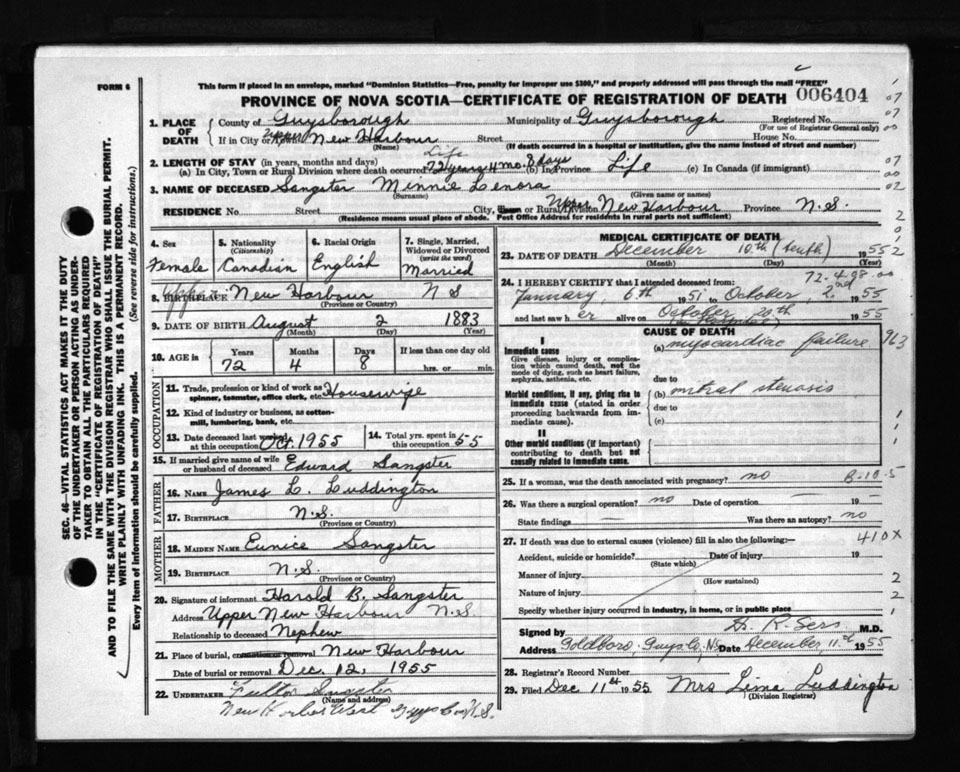 FORM 6
This form if placed in an envelope, marked "Dominion Statistics—Free, penalty for improper use $300," and properly addressed will pass through the mail "FREE"
PROVINCE OF NOVA SCOTIA—CERTIFICATE OF REGISTRATION OF DEATH 006404
1. PLACE OF DEATH County of Guysborough Municipality of Guysborough Registered No.
(For use of Registrar General only)
If in City or Town Upper New Harbour Street House No.
(Name) (If death occurred in a hospital or institution, give the name instead of street and number)
2. LENGTH OF STAY (in years, months and days) Life
(a) In City, Town or Rural Division where death occurred 72 years 4 mo. 8 days (b) In Province Life (c) In Canada (if immigrant)
3. NAME OF DECEASED Sangster Minnie Lenora
(Surname) (Given name or names)
RESIDENCE No. Street City, Town or Rural Division Upper New Harbour Province N.S.
(Residence means usual place of abode. Post Office Address for residents in rural parts not sufficient)
4. Sex Female
5. Nationality (Citizenship) Canadian
6. Racial Origin English
7. Single, Married, Widowed or Divorced (write the word) Married
8. BIRTHPLACE Upper New Harbour N S
(Province or Country)
9. DATE OF BIRTH August 2 1883
(Month) (Day) (Year)
10. AGE in Years Months Days If less than one day old
72 4 8 hrs. or min.
OCCUPATION
11. Trade, profession or kind of work as spinner, teamster, office clerk, etc. Housewife
12. Kind of industry or business, as cotton-mill, lumbering, bank, etc.
13. Date deceased last worked at this occupation Oct. 1955
14. Total yrs. spent in this occupation 55
15. If married give name of wife or husband of deceased Edward Sangster
FATHER
16. NAME James L. Luddington
17. BIRTHPLACE N.S.
(Province or Country)
MOTHER
18. MAIDEN NAME Eunice Sangster
19. BIRTHPLACE N.S.
(Province or Country)
20. Signature of informant Harold B. Sangster
Address Upper New Harbour N.S
Relationship to deceased Nephew
21. Place of burial, cremation or removal New Harbour
Date of burial or removal Dec. 12, 1955
22. UNDERTAKER Fulton Sangster
(Name and address)
New Harbor West Guys Co. N.S.
MEDICAL CERTIFICATE OF DEATH
23. DATE OF DEATH December 10th (tenth) 1955
(Month) (Day) (Year)
72-4-98-00
24. I HEREBY CERTIFY that I attended deceased from:
January 6th 1951 to October, 2nd, 1955
and last saw her alive on October 20th 1955
CAUSE OF DEATH
I
Immediate cause
Give disease, injury or complication which caused death, not the mode of dying, such as heart failure, asphyxia, asthenia, etc.
(a) myocardiac failure
963
due to
Morbid conditions, if any, giving rise to immediate cause (stated in order proceeding backwards from immediate cause).
(b) mitral stenosis
due to
(c)
II
Other morbid conditions (if important) contributing to death but not causally related to immediate cause.
25. If a woman, was the death associated with pregnancy? no B-10-5
26. Was there a surgical operation? no Date of operation — 19 —
State findings — Was there an autopsy? no
27. If death was due to external causes (violence) fill in also the following:— 410X
Accident, suicide or homicide? Date of injury 19
(State which)
Manner of injury
(How sustained)
Nature of injury
Specify whether injury occurred in industry, in home, or in public place
Signed by H. R. Sers M.D.
Address Goldboro, Guys. Co., N.S. Date December, 11th 1955
28. Registrar's Record Number
29. Filed Dec 11th 1955 Mrs Lima Luddington
(Division Registrar)
SEC. 46—VITAL STATISTICS ACT MAKES IT THE DUTY
OF THE UNDERTAKER OR PERSON ACTING AS UNDER-
TAKER TO OBTAIN ALL THE PARTICULARS REQUIRED
IN THE "CERTIFICATE OF REGISTRATION OF DEATH"
AND TO FILE THE SAME WITH THE DIVISION REGISTRAR WHO SHALL ISSUE THE BURIAL PERMIT.
WRITE PLAINLY WITH UNFADING INK. THIS IS A PERMANENT RECORD.
Every item of information should be carefully supplied. (See reverse side for instructions.)
07
07
00
07
00
02
2
0
1
2
1
1
2
2
1